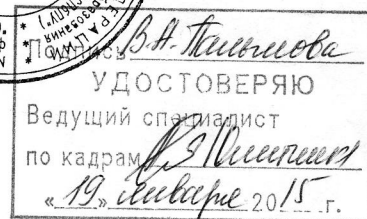 Подпись В.А. Пальмова
УДОСТОВЕРЯЮ
Ведущий специалист
по кадрам
«19» января 2015 г.